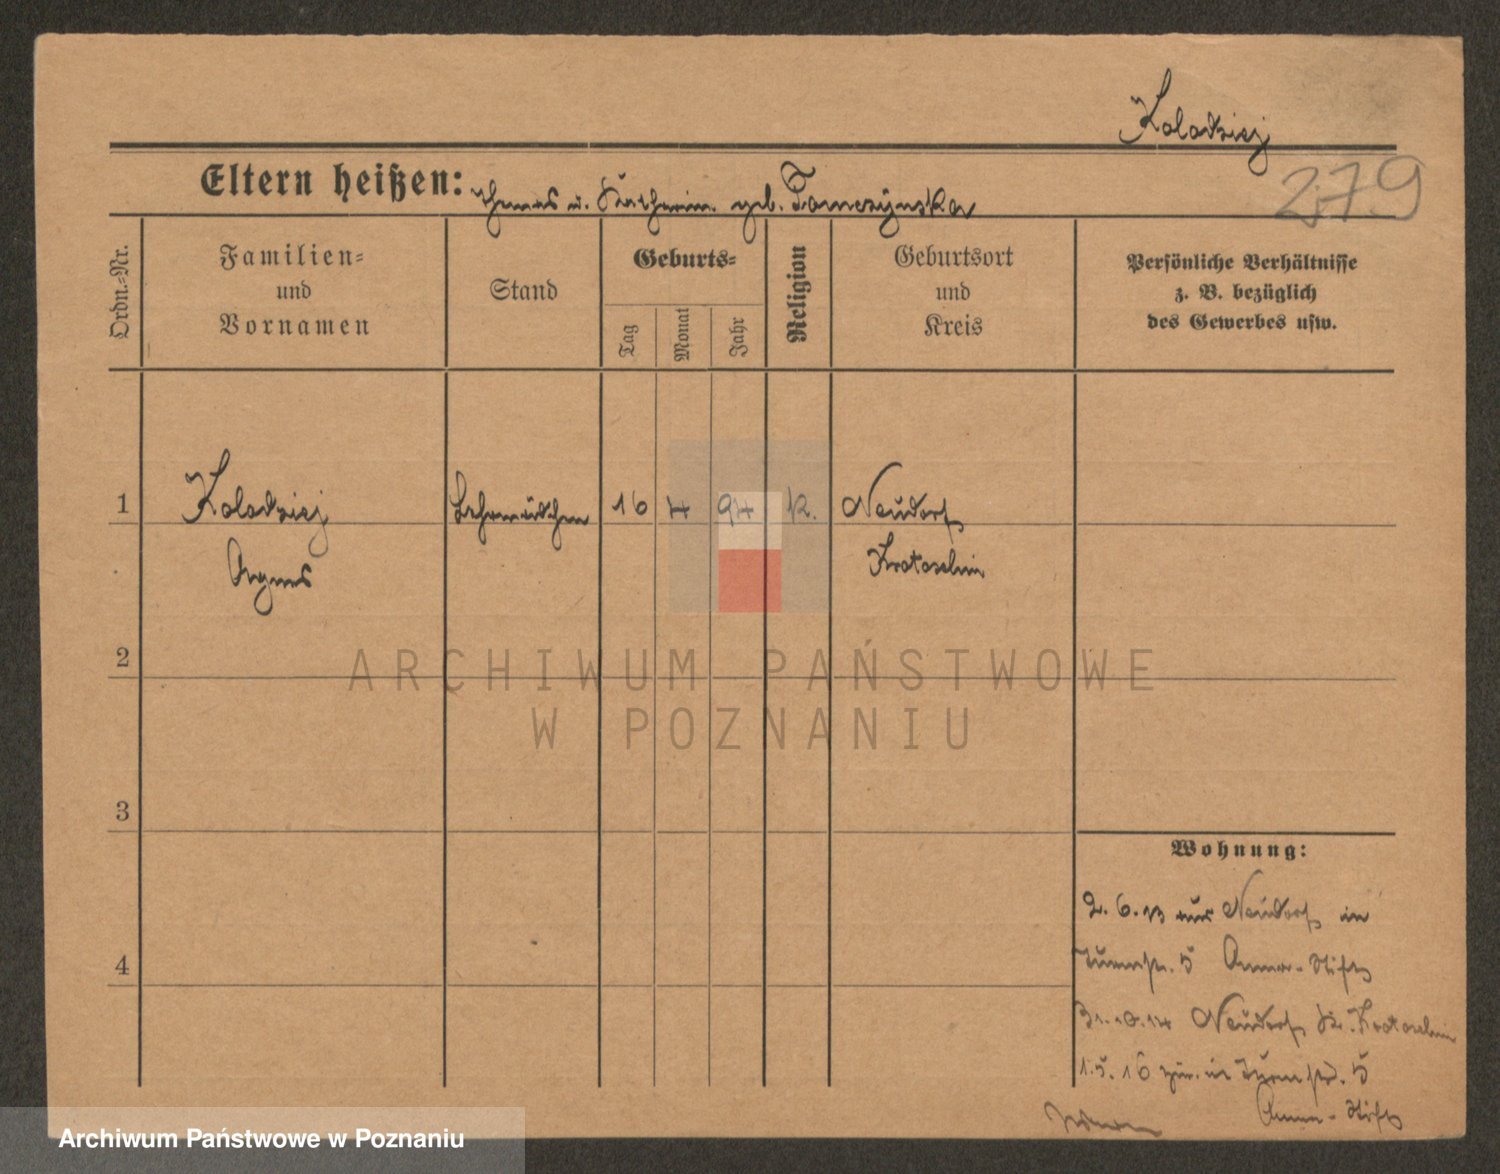 Kolodziej
279
Eltern heißen: Thomas u. Katharina geb. Tomczynska
Ordn.-Nr.
Familien-
und
Vornamen
Stand
Geburts-
Tag
Monat
Jahr
Religion
Geburtsort
und
Kreis
Persönliche Verhältnisse
z. B. bezüglich
des Gewerbes usw.
1 Kolodziej Lehrmädchen 16 4 94 k. Neudorf
Agnes Krotoschin
2
ARCHIWUM PAŃSTWOWE
W POZNANIU
3
Wohnung:
2. 6. 13 aus Neudorf in
Turmstr. 5 Anna-Stift
4
31. 10. 14 Neudorf Kr. Krotoschin
1. 5. 16 in Turmstr. 5
Anna-Stift
Archiwum Państwowe w Poznaniu